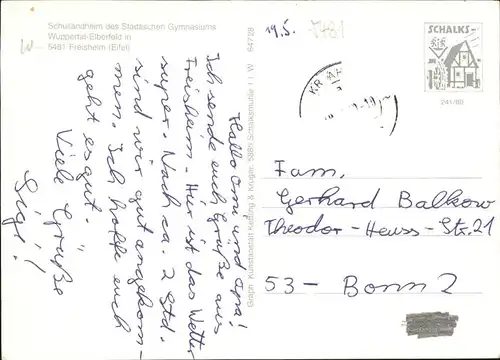 Schullandheim des Städtischen Gymnasiums
Wuppertal-Elberfeld in
5481 Freisheim (Eifel)
W
19.5.
Hallo Omi und Opa!
Ich sende euch Grüße aus
Freisheim. Hier ist das Wetter
super. Nach ca. 2 Std.
sind wir gut angekom-
men. Ich hoffe euch
geht es gut.
Viele Grüße
Graph. Kunstanstalt Kettling & Krüger, 5885 Schalksmühle 11 W 64728
SCHALKS-
241/83
Fam.
Gerhard Balkow
Theodor-Heuss-Str.21
53- Bonn 2